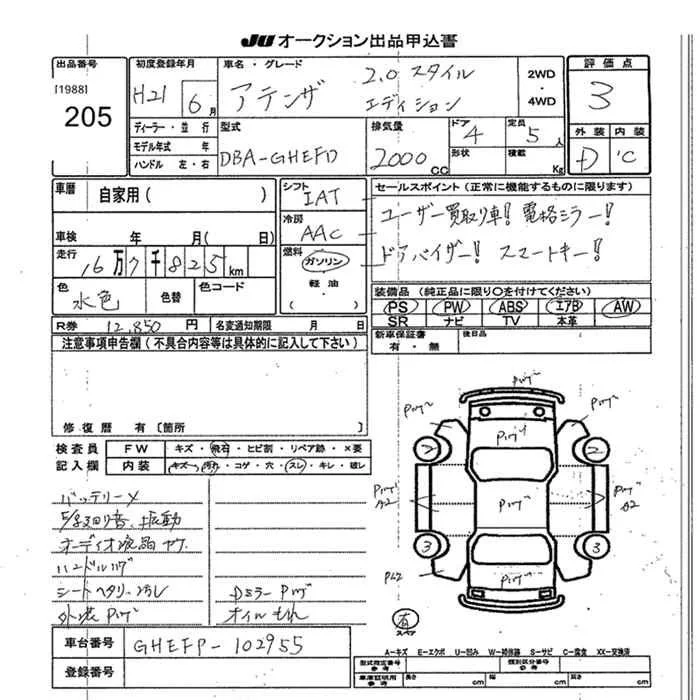 JU オークション出品申込書
出品番号
[1988]
205
初度登録年月
H21 6月
車名・グレード
アテンザ 2.0 スタイル
エディション
2WD
・
4WD
評価点
3
外装 内装
D C
ディーラー・並行
モデル年式 年
ハンドル 左・右
型式
DBA-GHEFP
排気量
2000cc
ドア
4
形状
定員
5人
積載 Kg
車暦 自家用( )
車検 年 月( 日)
走行 16万7千825km
色 水色 色替 色コード
シフト
IAT
冷房
AAC
燃料
ガソリン
・
軽油
・
( )
セールスポイント (正常に機能するものに限ります)
ユーザー買取り車! 電格ミラー!
ドアバイザー! スマートキー!
装備品 (純正品に限り〇を付けてください)
PS PW ABS エアB AW
SR ナビ TV 本革
新車保証書 後日品
有・無
R券 12,850円 名変通知期限 月 日
注意事項申告欄(不具合内容等は具体的に記入して下さい)
修復歴 有〔箇所 〕
検査員
記入欄
FW キズ・飛石・ヒビ割・リペア跡・×要
内装 キズ・汚れ・コゲ・穴・スレ・キレ・破レ
バッテリー×
オーディオ液晶ヤケ
シートヘタリ、汚レ
オイルもれ
車台番号 GHEFP-102955
登録番号
有
スペア
A=キズ E=エクボ U=凹み W=補修跡 S=サビ C=腐食 XX=交換済
型式指定番号
参考
類別区分番号
参考
車庫証明用
参考
長さ cm 幅 cm 高さ cm